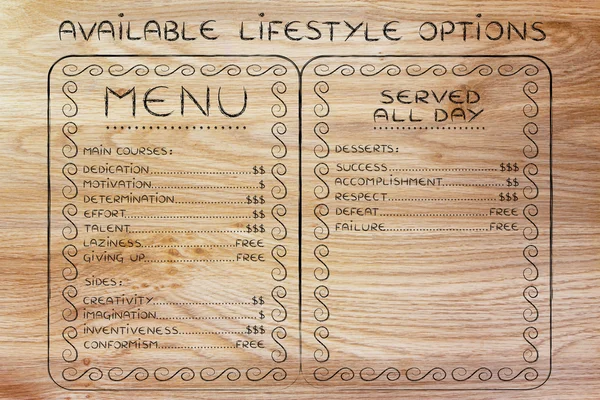 AVAILABLE LIFESTYLE OPTIONS
MENU
MAIN COURSES:
DEDICATION..................$$
MOTIVATION..................$
DETERMINATION............$$$
EFFORT.........................$$
TALENT.......................$$$
LAZINESS....................FREE
GIVING UP...................FREE
SIDES:
CREATIVITY..................$$
IMAGINATION.................$
INVENTIVENESS............$$$
CONFORMISM...............FREE
SERVED
ALL DAY
DESSERTS:
SUCCESS.....................$$$
ACCOMPLISHMENT..........$$
RESPECT.....................$$$
DEFEAT......................FREE
FAILURE.....................FREE